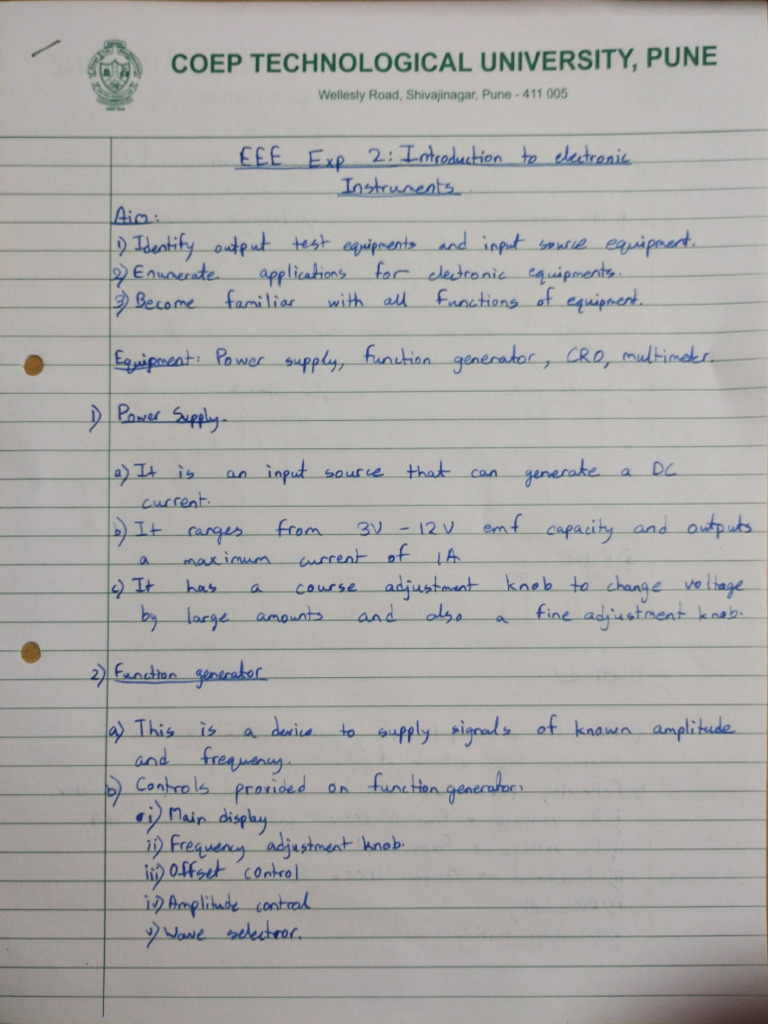 COEP TECHNOLOGICAL UNIVERSITY, PUNE
Wellesly Road, Shivajinagar, Pune - 411 005
EEE Exp 2: Introduction to electronic
Instruments
Aim:
1) Identify output test equipments and input source equipment.
2) Enumerate applications for electronic equipments.
3) Become familiar with all functions of equipment.
Equipment: Power supply, function generator, CRO, multimeter.
1) Power Supply.
a) It is an input source that can generate a DC
current.
b) It ranges from 3V - 12V emf capacity and outputs
a maximum current of 1A
c) It has a course adjustment knob to change voltage
by large amounts and also a fine adjustment knob.
2) Function generator
a) This is a device to supply signals of known amplitude
and frequency.
b) Controls provided on function generator:
i) Main display
ii) Frequency adjustment knob.
iii) Offset control
iv) Amplitude control
v) Wave selectror.